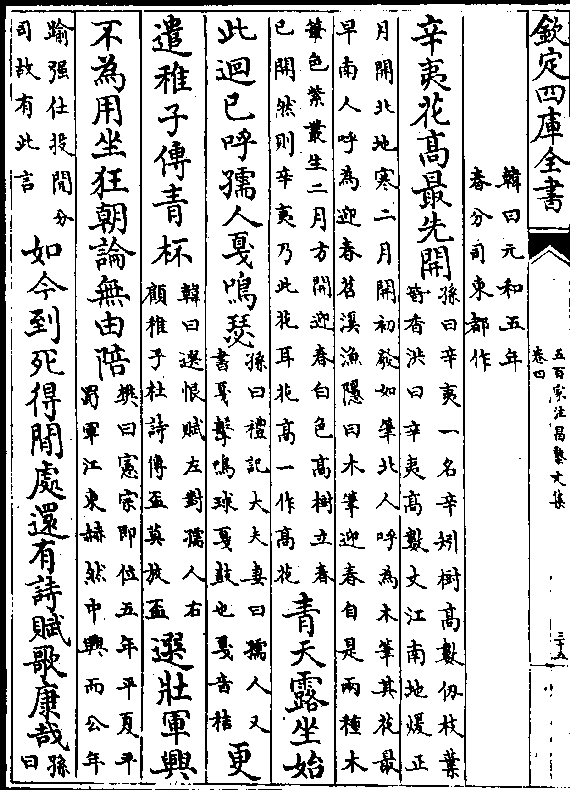 欽定四庫全書
五百家注昌黎文集
卷四
三十五
韓曰元和五年
春分司東都作
辛夷花高最先開
孫曰辛夷一名辛矧樹高數仞枝葉
皆香洪曰辛夷高數丈江南地煖正
月開北地寒二月開初發如筆北人呼為木筆其花最
早南人呼為迎春苕溪漁隱曰木筆迎春自是兩種木
筆色紫叢生二月方開迎春白色高樹立春
已開然則辛夷乃此花耳花高一作高花
青天露坐始
此迴已呼孺人戛鳴瑟
孫曰禮記大夫妻曰孺人又
書戛擊鳴球戛鼓也戛音桔
更
遣稚子傳青杯
韓曰選恨賦左對孺人右
顧稚子杜詩傳盃莫放盃
選壯軍興
不為用坐狂朝論無由陪
樊曰憲宗即位五年平夏平
蜀軍江東赫然中興而公年
踰强仕投閒分
司故有此言
如今到死得閒處還有詩賦歌康哉
孫曰